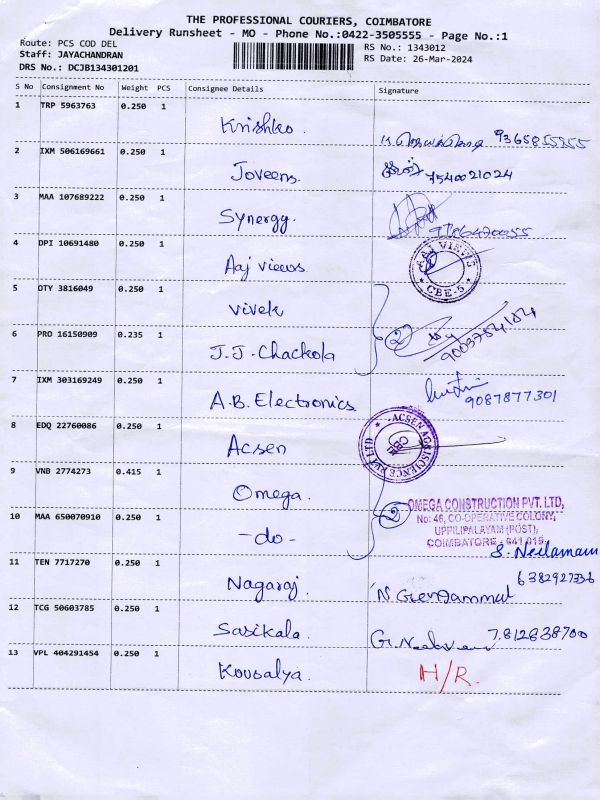 THE PROFESSIONAL COURIERS, COIMBATORE
Delivery Runsheet - MO - Phone No.:0422-3505555 - Page No.:1
Route: PCS COD DEL
RS No.: 1343012
Staff: JAYACHANDRAN
RS Date: 26-Mar-2024
DRS No.: DCJB134301201
S No Consignment No Weight PCS Consignee Details Signature
1 TRP 5963763 0.250 1 Krishko
2 IXM 506169661 0.250 1 Joveens. 7540021024
3 MAA 107689222 0.250 1 Synergy.
4 DPI 10691480 0.250 1 Aaj views. AAJ VIEWS CBE-5
5 OTY 3816049 0.250 1 Vivek
6 PRO 16150909 0.235 1 J.J. Chackola 2 9003754184
7 IXM 303169249 0.250 1 A.B. Electronics 9087877301
8 EDQ 22760086 0.250 1 Acsen ACSEN AGRISCIENCE PVT LTD CBE
9 VNB 2774273 0.415 1 Omega. 2 OMEGA CONSTRUCTION PVT. LTD,
No: 46, CO-OPERATIVE COLONY,
10 MAA 650070910 0.250 1 -do- UPPILIPALAYAM (POST),
COIMBATORE - 641 015.
S. Neelamani
11 TEN 7717270 0.250 1 Nagaraj. 6382927336
12 TCG 50603785 0.250 1 Sasikala. 7812838700
13 VPL 404291454 0.250 1 Kousalya. H/R.